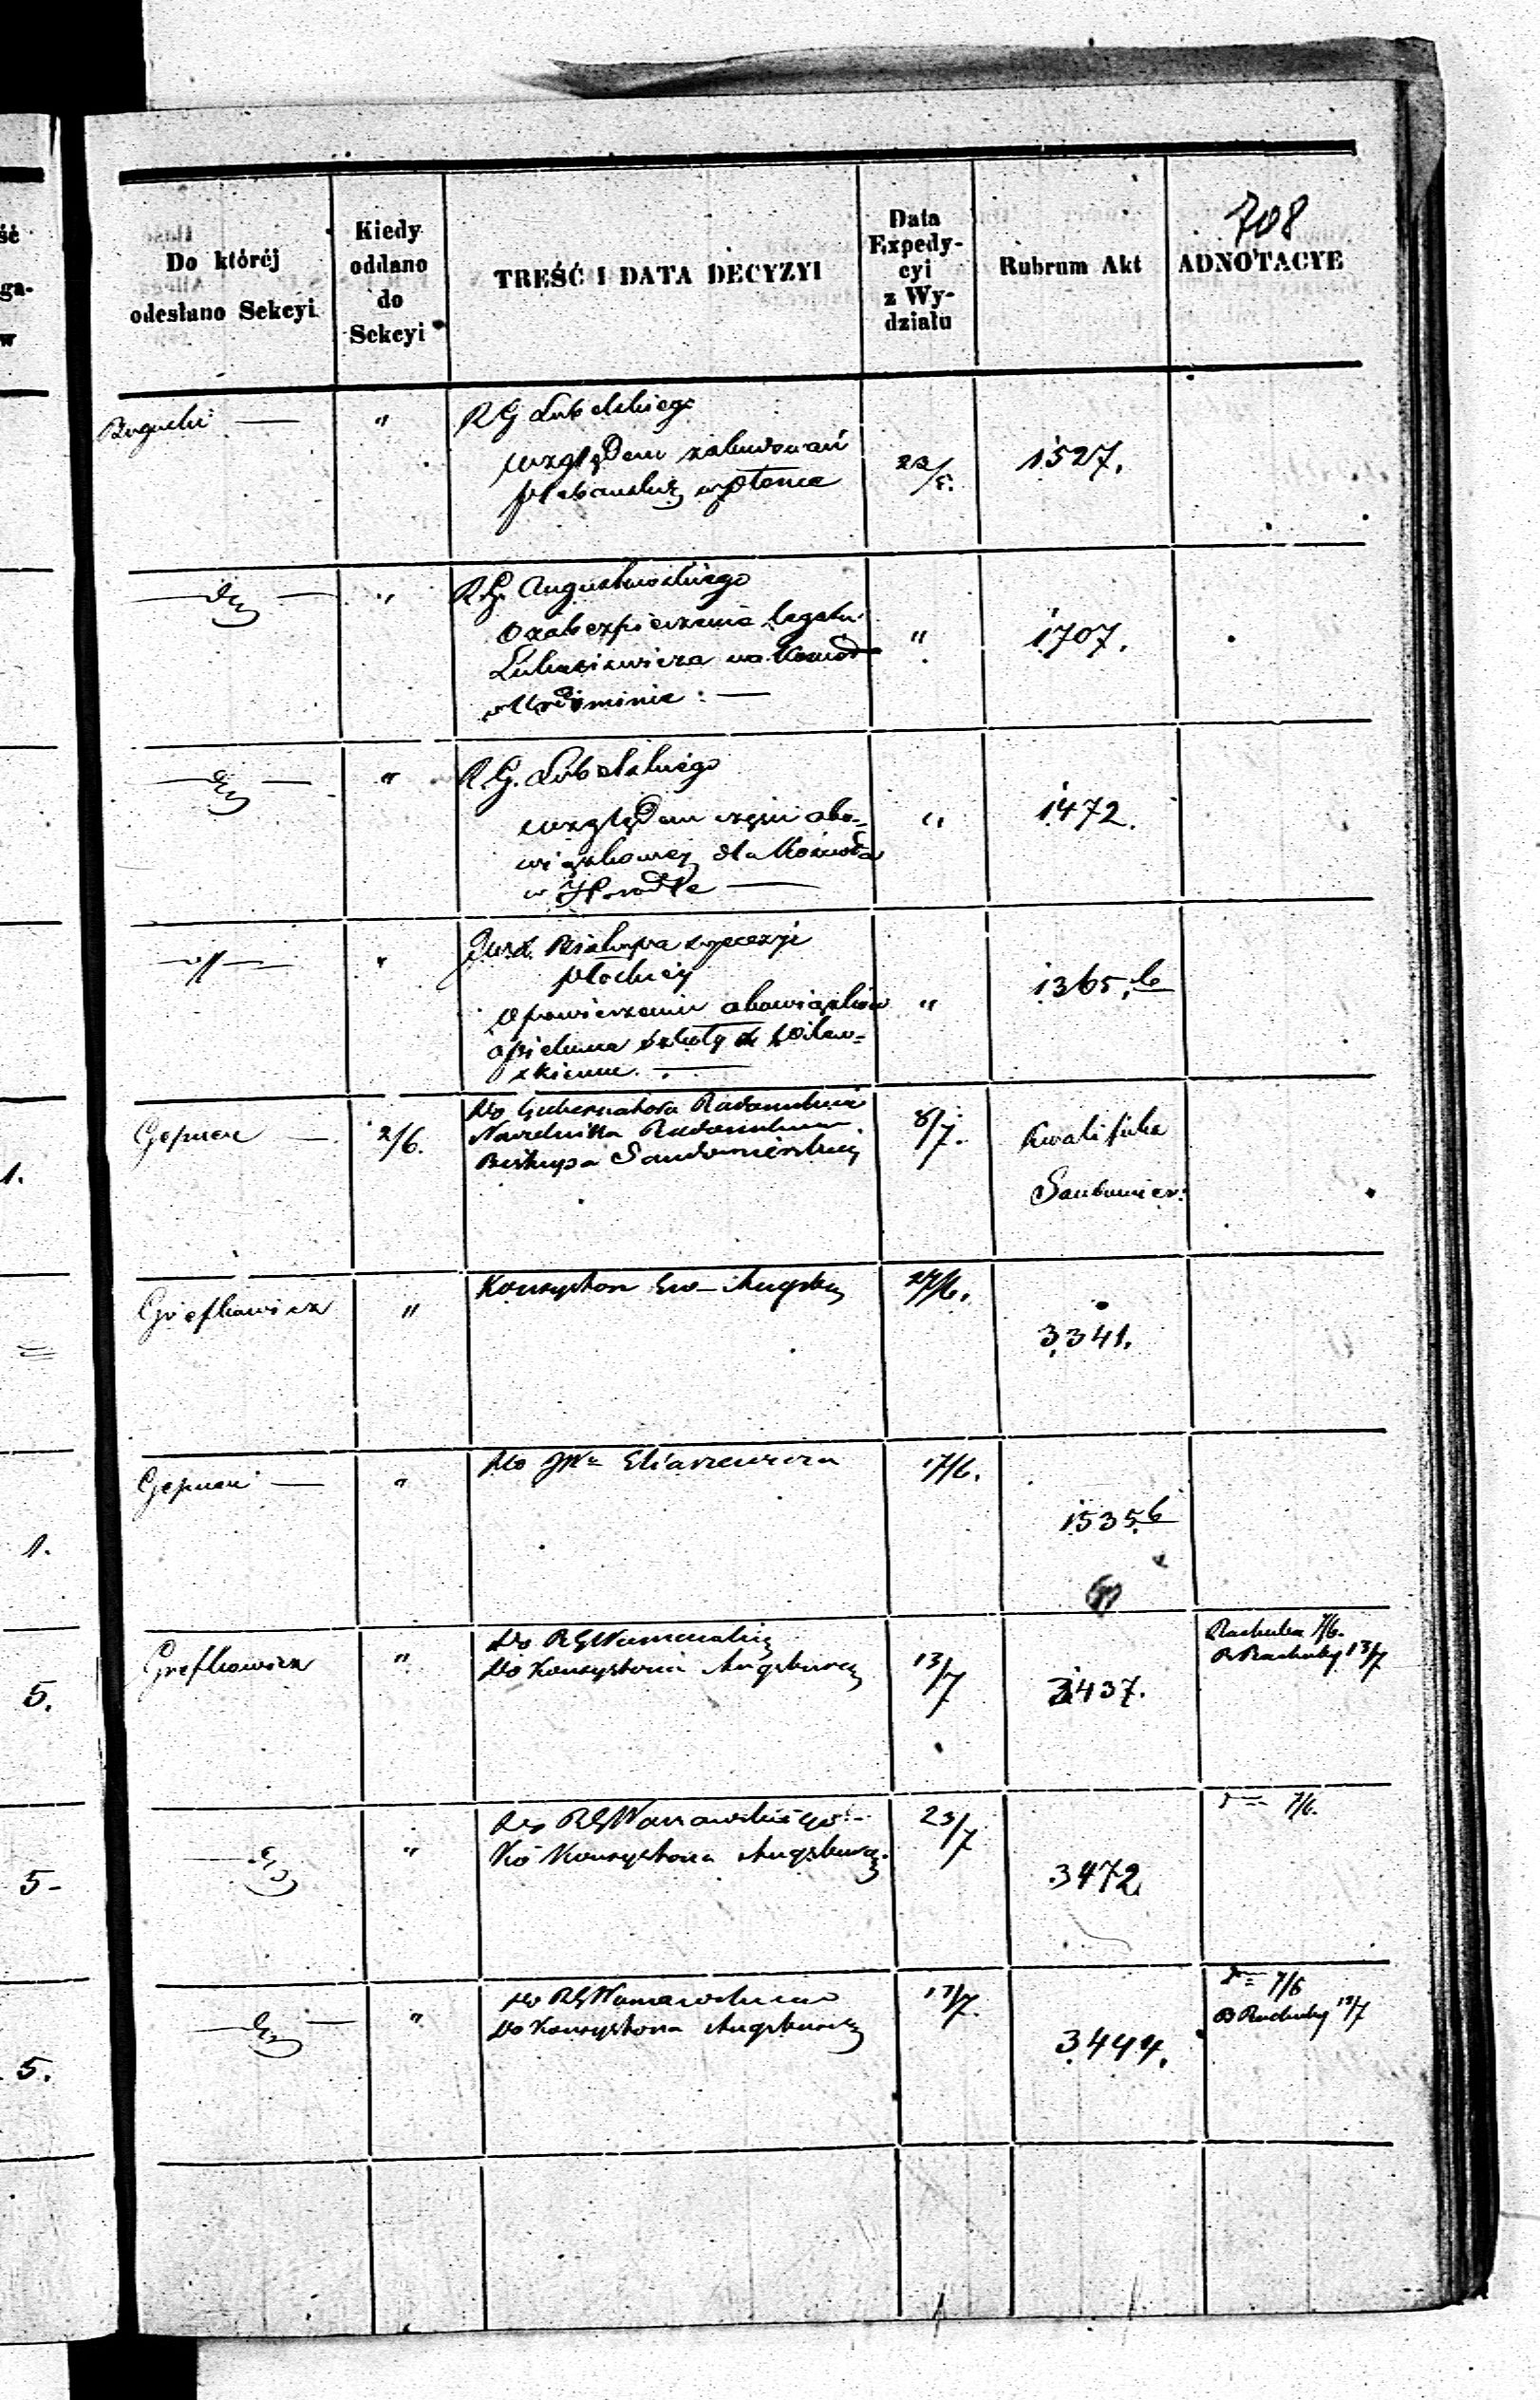 708
Do któréj
odesłano Sekcyi
Kiedy
oddano
do
Sekcyi
TREŚĆ I DATA DECYZYI
Data
Expedy-
cyi
z Wy-
działu
Rubrum Akt
ADNOTACYE
ść
ga-
w
Bogucki — " RG Lubelskiego
względem zabudowań
plebańskich w
22/5. 1527.
— dto — " R.G. Augustowskiego
O zabezpieczenie legatu
Łukasiewicza na Kościół
" 1707.
— dto — " R.G. Lubelskiego
względem
dla Kościoła
w Horodle —
" 1472.
— " — " Biskupa Dyecezyi
płockiej
O powierzenie obowiązków
opiekuna szkoły
" 1365.b
1.
Gepner — 2/6. Do Gubernatora Radomskiego
Naczelnika Radomskiego
Biskupa Sandomierskiej
8/7. Kwalifika
Sandomier:
Grefkowicz " Konsystorz Ew-Augsbu
24/6. 3341.
1.
Gepner — " Do JWo Eliaszewicza
17/6. 1535b
5.
Grefkowicz " Do RGWarszawskiego
Do Konsystorza Augsburg
13/7 3437. Rachuba 7/6.
Z Rachuby 13/7
5-
— dto " Do RGWarszawskiego
Do Konsystorza Augsburg.
23/7 3472 dto 7/6.
5.
— dto — " Do RGWarszawskiego
Do Konsystorza Augsburg
13/7. 3444. dto 7/6
Z Rachuby 13/7